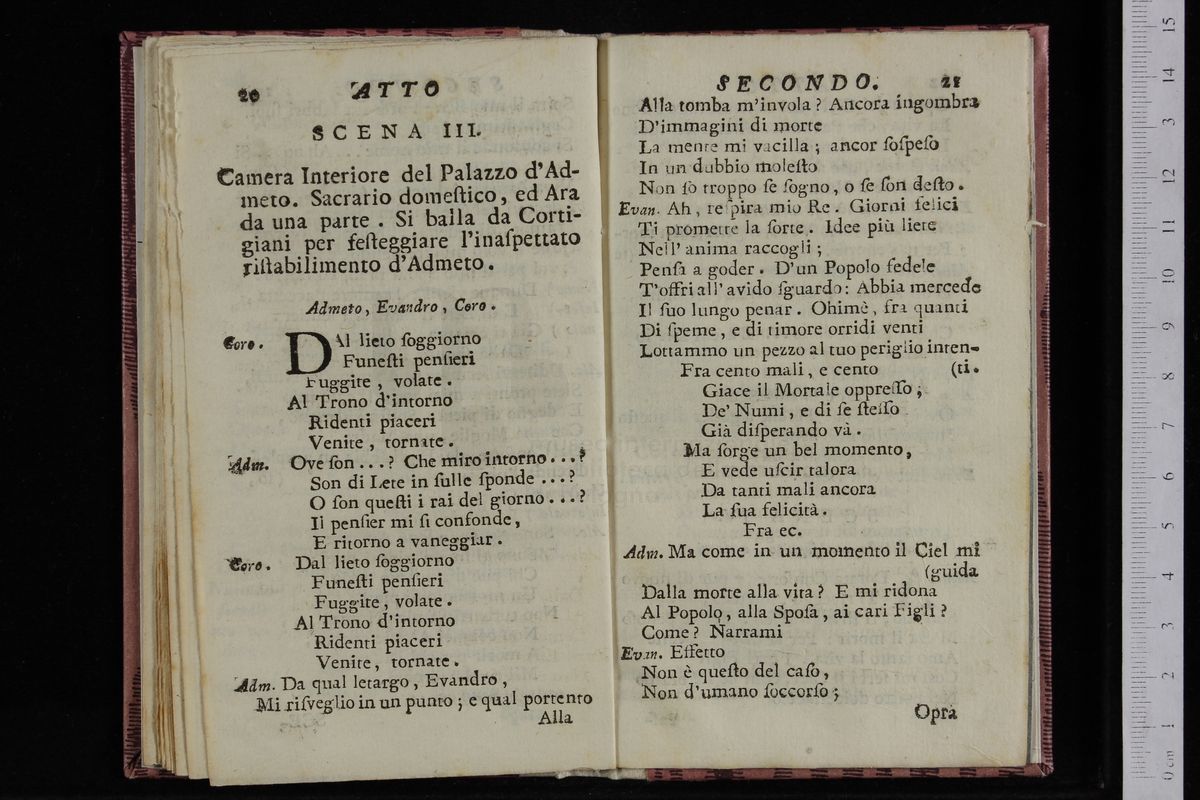 20 ATTO
SCENA III.
Camera Interiore del Palazzo d'Ad-
meto. Sacrario domeſtico, ed Ara
da una parte. Si balla da Corti-
giani per feſteggiare l'inaſpettato
riſtabilimento d'Admeto.
Admeto, Evandro, Coro.
Coro. DAl lieto ſoggiorno
Funeſti penſieri
Fuggite, volate.
Al Trono d'intorno
Ridenti piaceri
Venite, tornate.
Adm. Ove ſon...? Che miro intorno...?
Son di Lete in ſulle ſponde...?
O ſon queſti i rai del giorno...?
Il penſier mi ſi confonde,
E ritorno a vaneggiar.
Coro. Dal lieto ſoggiorno
Funeſti penſieri
Fuggite, volate.
Al Trono d'intorno
Ridenti piaceri
Venite, tornate.
Adm. Da qual letargo, Evandro,
Mi riſveglio in un punto; e qual portento
Alla
SECONDO. 21
Alla tomba m'invola? Ancora ingombra
D'immagini di morte
La mente mi vacilla; ancor ſoſpeſo
In un dubbio moleſto
Non ſò troppo ſe ſogno, o ſe ſon deſto.
Evan. Ah, reſpira mio Re. Giorni felici
Ti promette la ſorte. Idee più liete
Nell' anima raccogli;
Penſa a goder. D'un Popolo fedele
T'offri all' avido ſguardo: Abbia mercede
Il ſuo lungo penar. Ohimè, fra quanti
Di ſpeme, e di timore orridi venti
Lottammo un pezzo al tuo periglio inten-
Fra cento mali, e cento (ti.
Giace il Mortale oppreſſo;
De' Numi, e di ſe ſteſſo
Già diſperando và.
Ma ſorge un bel momento,
E vede uſcir talora
Da tanti mali ancora
La ſua felicità.
Fra ec.
Adm. Ma come in un momento il Ciel mi
(guida
Dalla morte alla vita? E mi ridona
Al Popolo, alla Spoſa, ai cari Figli?
Come? Narrami
Evan. Effetto
Non è queſto del caſo,
Non d'umano ſoccorſo;
Opra
15
14
13
12
11
10
9
8
7
6
5
4
3
2
1
0 cm